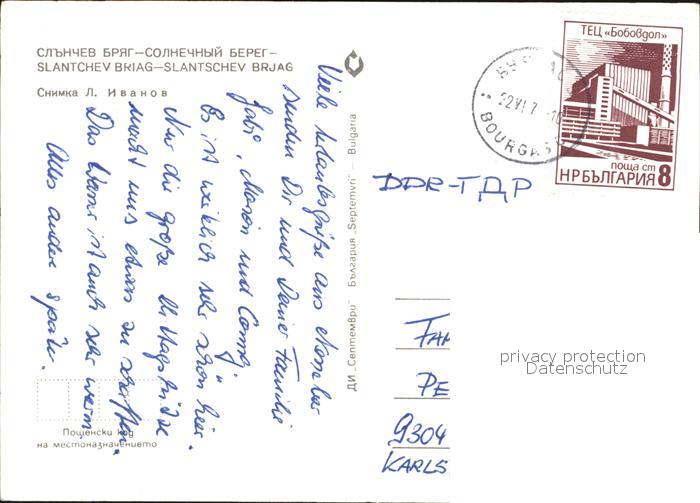 СЛЪНЧЕВ БРЯГ—СОЛНЕЧНЫЙ БЕРЕГ—
SLANTCHEV BRIAG—SLANTSCHEV BRJAG
Снимка Л. Иванов
Viele Urlaubsgrüße aus Nessebar
senden Dir und Deiner Familie
Gabi, und
Es ist wirklich sehr schön hier.
Nur die große Mittagshitze
macht uns etwas zu schaffen.
Das Wasser ist auch sehr warm.
Alles andere später.
Пощенски код
на местоназначението
ДИ „Септември" България „Septemvri" — Bulgaria
BOURGAS
ТЕЦ „Бобовдол"
поща ст
НРБЪЛГАРИЯ 8
DDR-ГДР
FAM
PE
9304
KARLS
privacy protection
Datenschutz